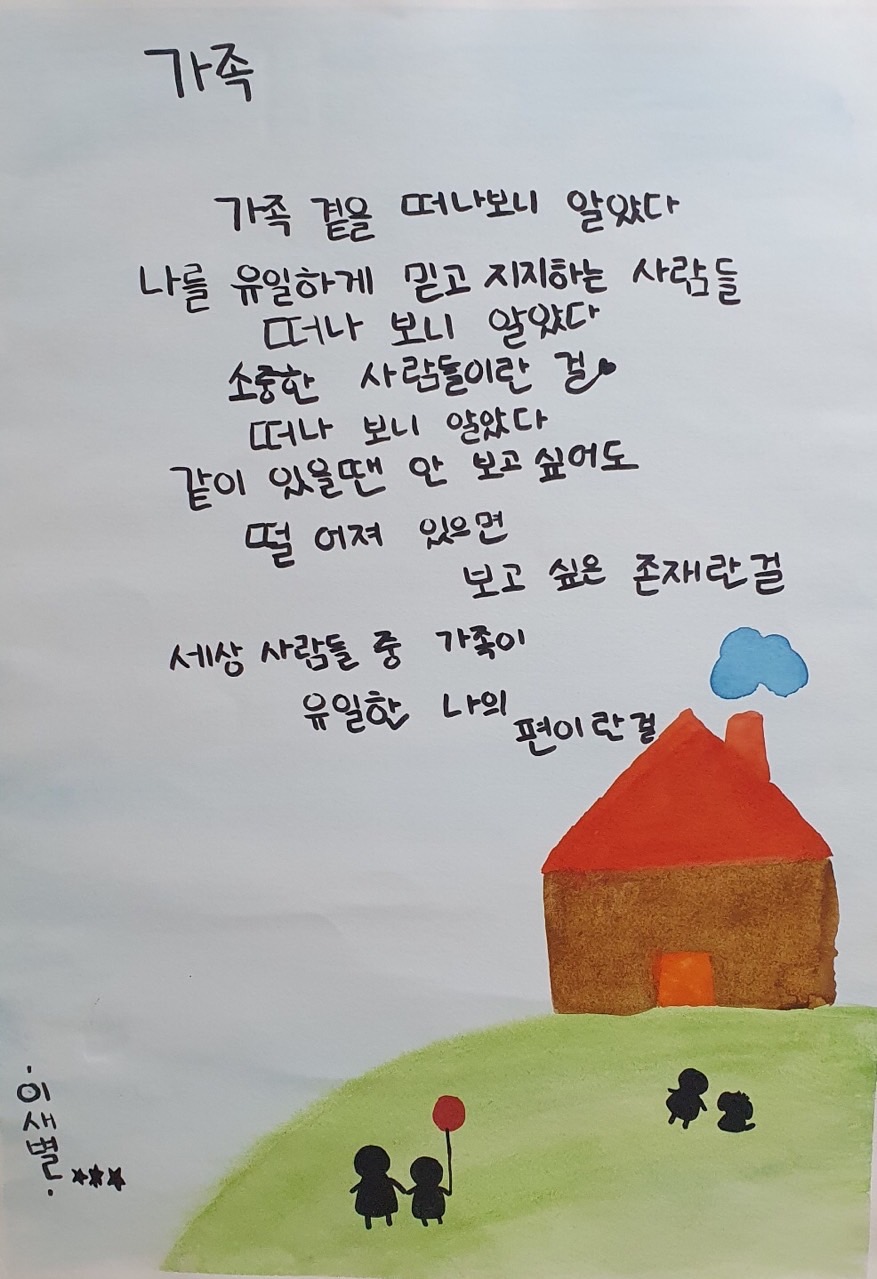 가족
가족 곁을 떠나보니 알았다
나를 유일하게 믿고 지지하는 사람들
떠나 보니 알았다
소중한 사람들이란 걸
떠나 보니 알았다
같이 있을땐 안 보고 싶어도
떨 어져 있으면
보고 싶은 존재란걸
세상 사람들 중 가족이
유일한 나의
편이란걸
이새별